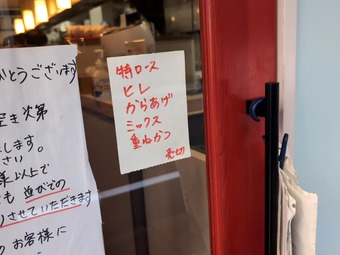 がとうございます
空き次第
します。
さい。
様以上で
も並んでの
りさせていただきます
のお客様に
特ロース
ヒレ
からあげ
ミックス
重ねかつ
売切